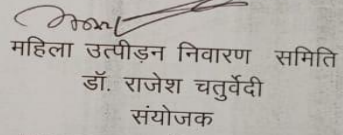 महिला उत्पीड़न निवारण समिति
डॉ. राजेश चतुर्वेदी
संयोजक